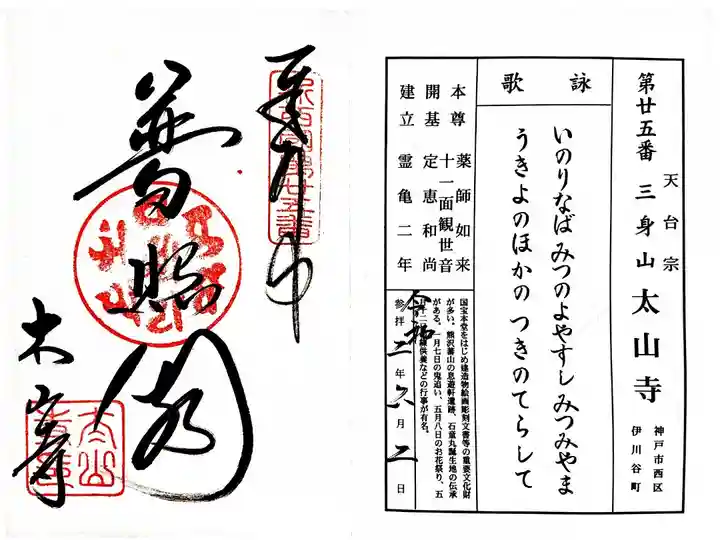 第廿五番
天台宗
三身山
太山寺
神戸市西区
伊川谷町
詠歌
いのりなば みつのよやすし みつみやま
うきよのほかの つきのてらして
本尊 薬師如来
十一面観世音
開基 定恵和尚
建立 霊亀二年
国宝本堂をはじめ建造物絵画彫刻文書等の重要文化財
が多い。熊沢蕃山の息遊軒遺跡、石童丸誕生地の伝承
がある。一月七日の鬼追い、五月八日のお花祭り、五
供養などの行事が有名。
令和
参拝 二年 六月 二日
新西国第廿五番
普照閣
太山寺